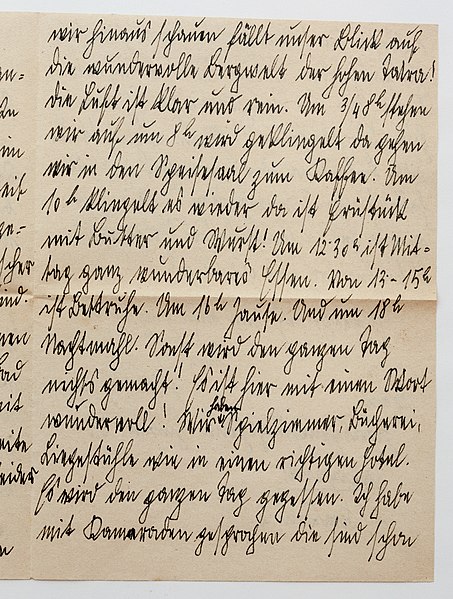 wir hinaus schauen fällt unser Blick auf
die wundervolle Bergwelt der hohen Tatra!
Die Luft ist klar und rein. Um 3/4 8h stehen
wir auf um 8h wird geklingelt da gehen
wir in den Speisesaal zum Kaffee. Um
10h klingelt es wieder da ist Früstück
mit Butter und Wurst! Um 12 30h ist Mit-
tag ganz wunderbares Essen. Von 13-15h
ist Bettruhe. Um 16h Jause. Und um 18h
Nachtmahl. Sonst wird den ganzen Tag
nichts gemacht! Es ist hier mit einen Wort
wundervoll! Wir haben Spielzimmer, Bücherei,
Liegestühle wie in einen richtigen Hotel.
Es wird den ganzen Tag gegessen. Ich habe
mit Kameraden gesprochen die sind schon